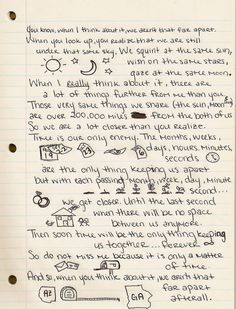 You know, when I think about it, we aren't that far apart.
When you look up, you realize that we are still
under that same sky. We squint at the same sun,
wish on the same stars,
gaze at the same moon.
When I really think about it, there are
a lot of things further from me than you.
Those very same things we share (the sun, moon)
are over 200,000 miles from the both of us
So we are a lot closer than you realize.
Time is our only enemy. The months, weeks,
days, hours, minutes,
seconds
19
are the only thing keeping us apart
but with each passing month, week, day, minute
second...
we get closer. Until the last second
when there will be no space
between us anymore.
Then soon time will be the only thing keeping
us together... Forever
So do not miss me because it is only a matter
of time.
And so, when you think about it, we aren't that
far apart
afterall.
AZ
GA